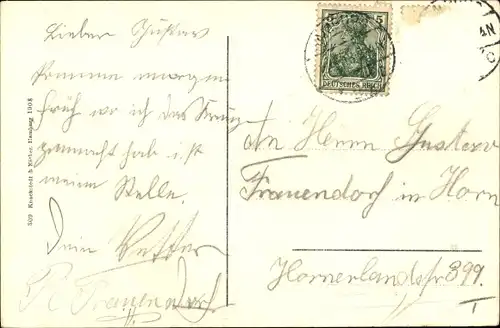 Lieber Gustav
komme morgen
früh wo ich das Kreuz
gemacht hab i. st
meine Stelle.
Dein Vetter
R Frauendorf
509 Knackstedt & Näther, Hamburg 1908
5
DEUTSCHES REICH
AN
An Herrn Gustav
Frauendorf in Horn
Hornerlandstr 399.
I